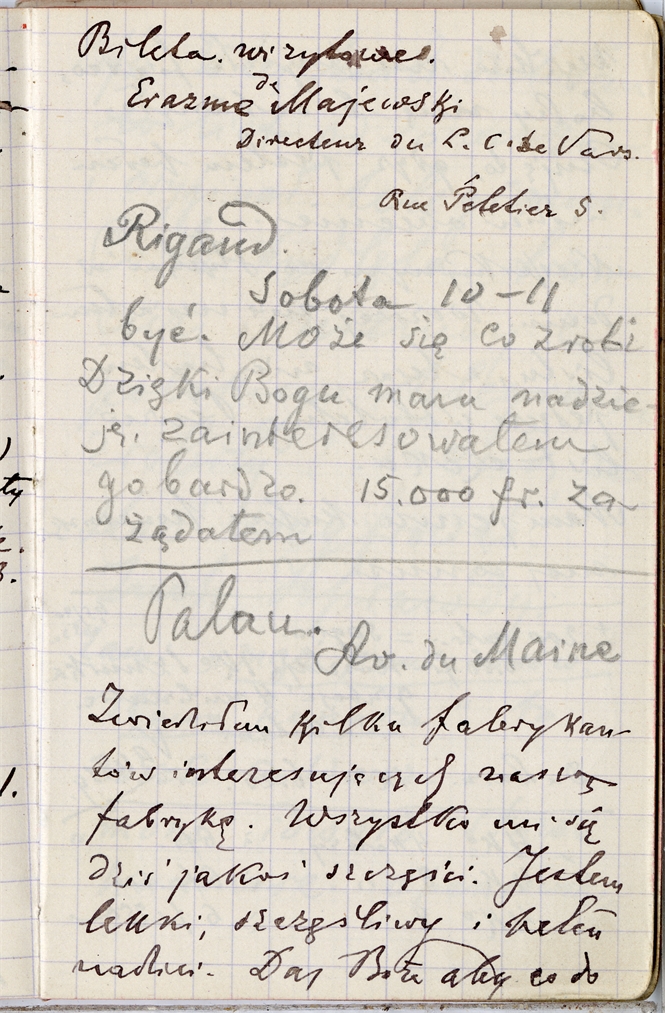 Bileta. wizytowe.
Erazme de Majewski
Directeur du L. C. de Vars.
Rue Peletier 5.
Rigaud.
Sobota 10-11
być. Może się co zrobi
Dzięki Bogu mam nadzie-
ję. zainteresowałem
go bardzo. 15.000 fr. za-
żądałem
Palau.
Av. du Maine
Zwiedziłam kilku fabrykan-
tów interesujących naszą
fabrykę. Wszystko mi się
dziś jakoś szczęści. Jestem
lekki, szczęśliwy i pełen
nadziei. Daj Boże aby co do